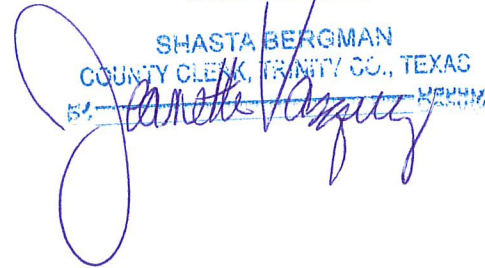 SHASTA BERGMAN
COUNTY CLERK, TRINITY CO., TEXAS
BY Jeanette Vazquez DEPUTY